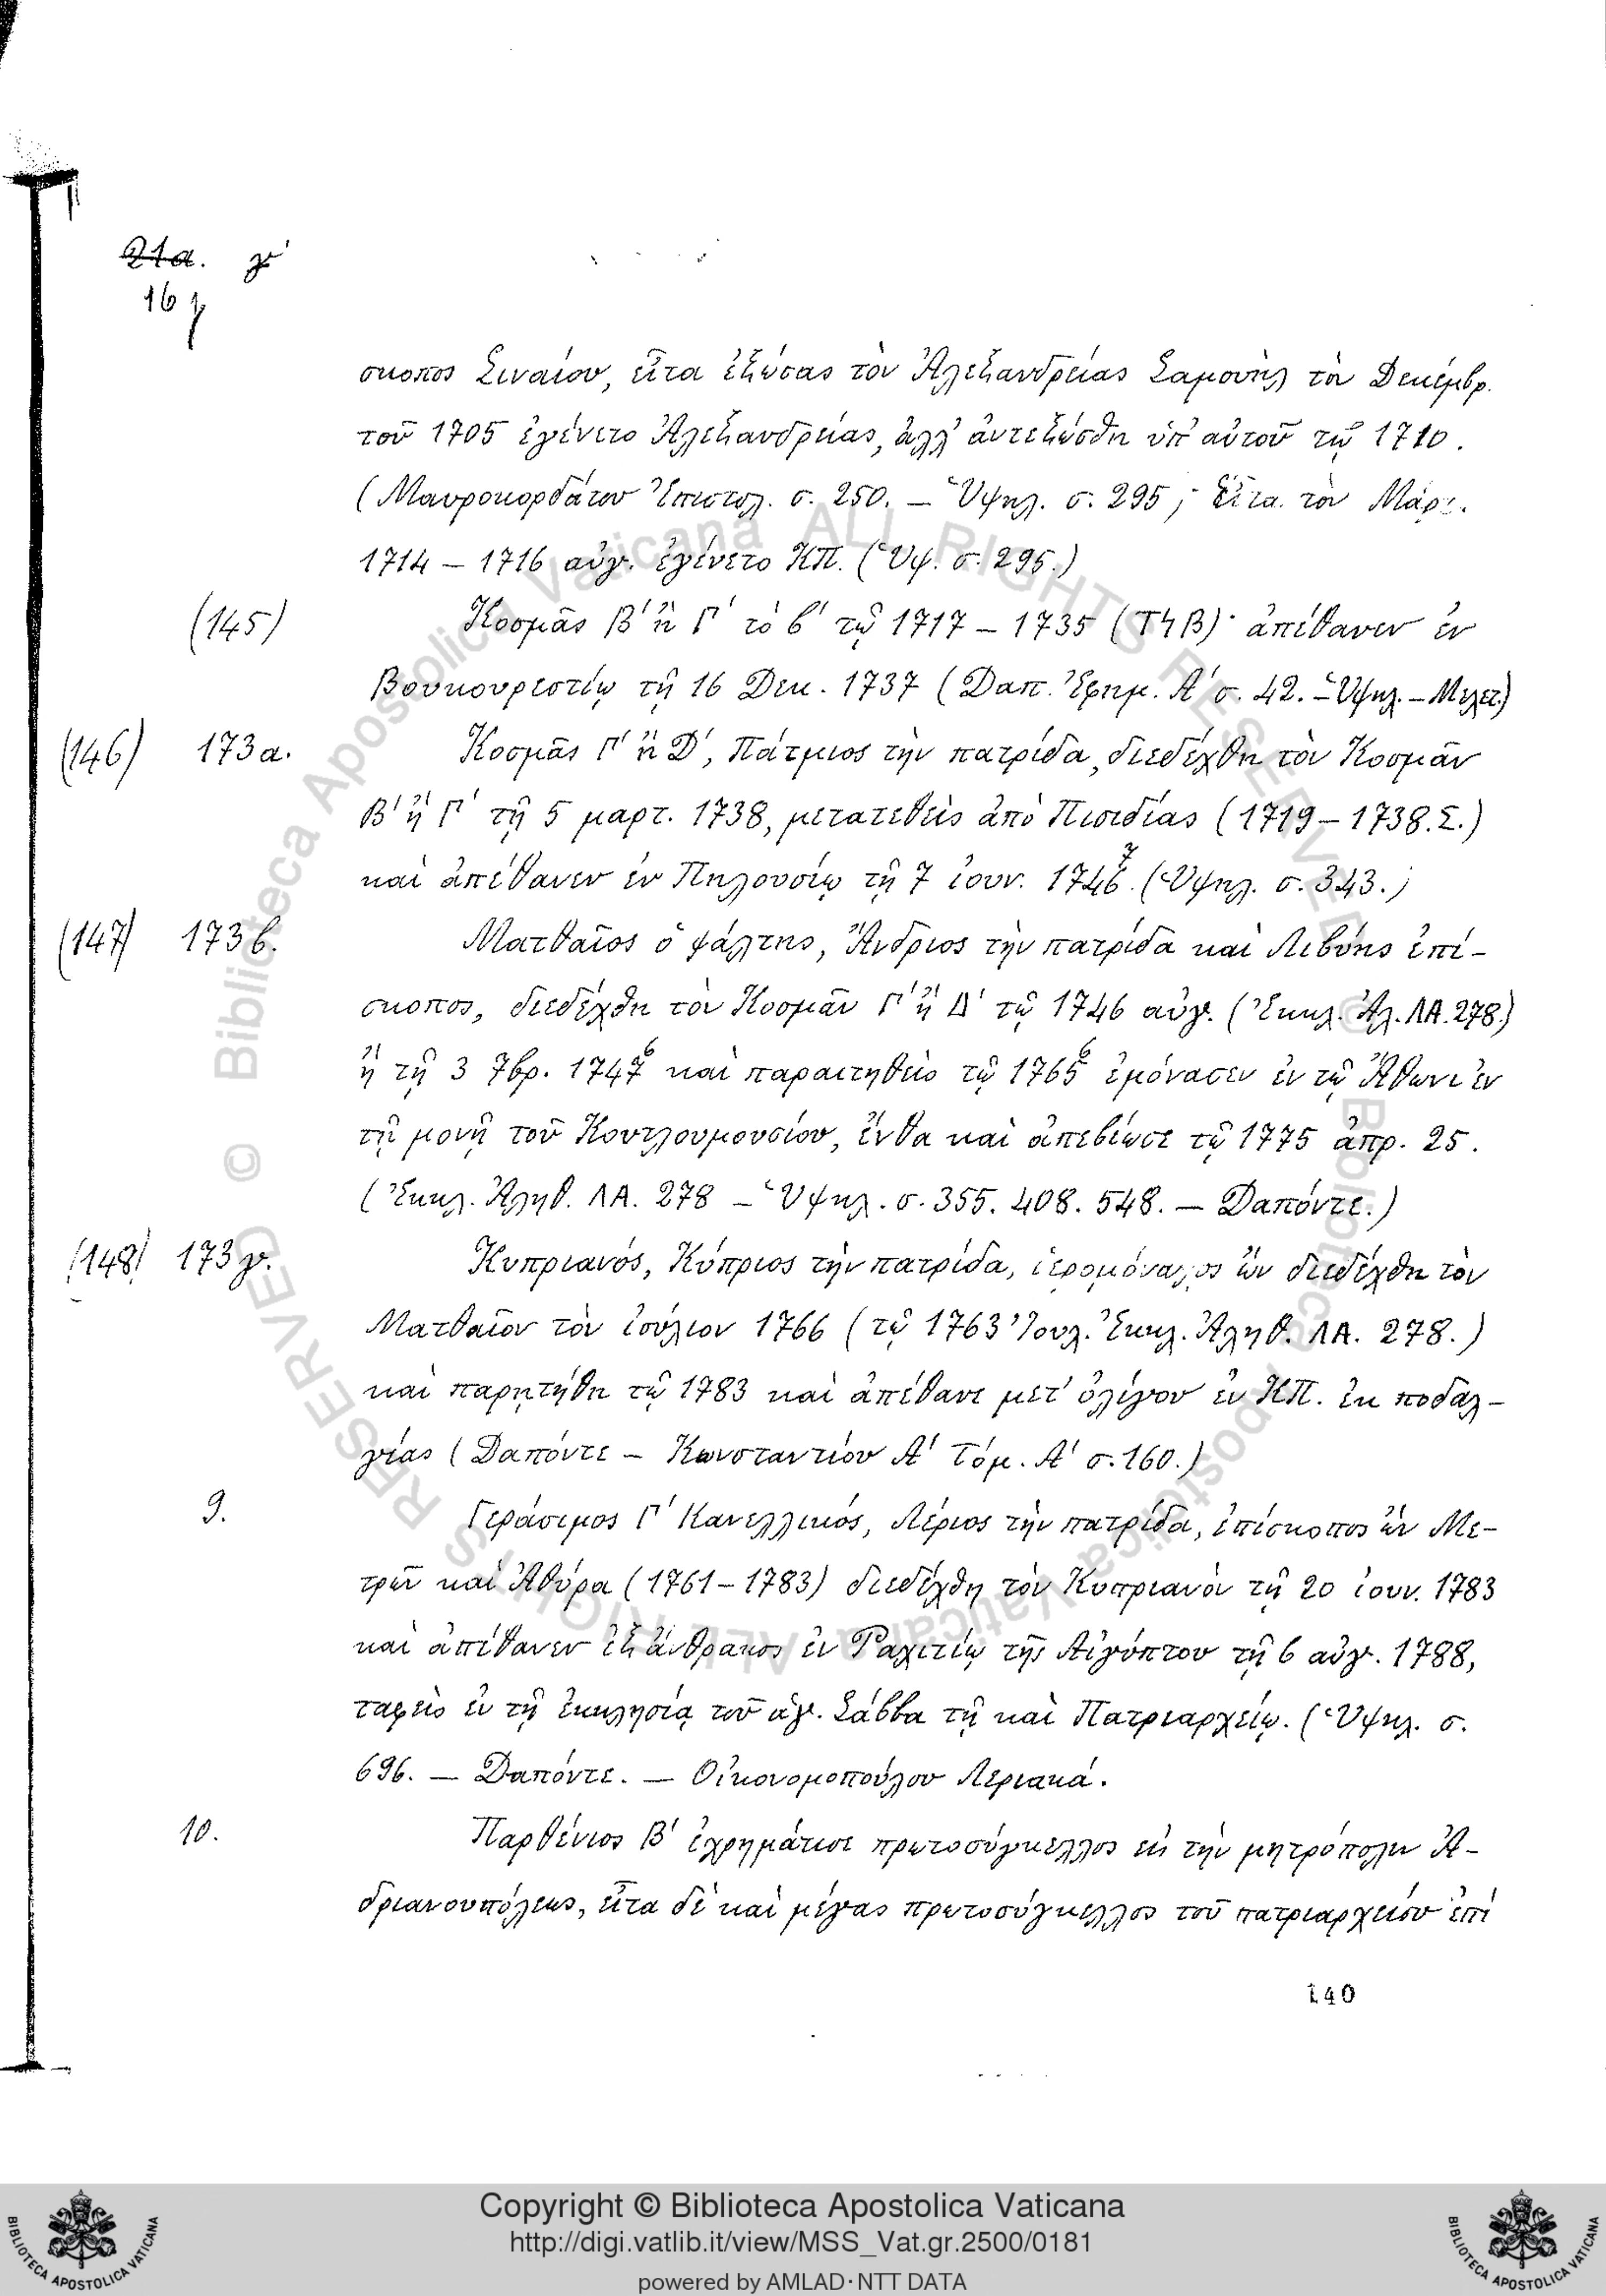 21a. γ'
16
σκοπος Σιναίου, εἶτα ἐξώσας τὸν Ἀλεξανδρείας Σαμουὴλ τὸν Δεκέμβρ.
τοῦ 1705 ἐγένετο Ἀλεξανδρείας, ἀλλ' ἀντεξώσθη ὑπ' αὐτοῦ τῷ 1710.
(Μαυροκορδάτου Ἐπιστολ. σ. 250. – Ὑψηλ. σ. 295; Εἶτα τὸν Μάρτ.
1714 – 1716 αὐγ. ἐγένετο ΚΠ. (Ὑψ. σ. 295.)
(145) Κοσμᾶς Β' ἢ Γ' τὸ β' τῷ 1717 – 1735 (ΤϞΒ)· ἀπέθανεν ἐν
Βουκουρεστίῳ τῇ 16 Δεκ. 1737 (Δαπ. Ἐφημ. Α' σ. 42. – Ὑψηλ. – Μελετ.)
(146) 173α. Κοσμᾶς Γ' ἢ Δ', Πάτμιος τὴν πατρίδα, διεδέχθη τὸν Κοσμᾶν
Β' ἢ Γ' τῇ 5 μαρτ. 1738, μετατεθεὶς ἀπὸ Πισιδίας (1719 – 1738. Σ.)
7
καὶ ἀπέθανεν ἐν Πηλουσίῳ τῇ 7 ἰουν. 1746. (Ὑψηλ. σ. 343.)
(147) 173β. Ματθαῖος ὁ ψάλτης, Ἄνδριος τὴν πατρίδα καὶ Λιβύης ἐπί-
σκοπος, διεδέχθη τὸν Κοσμᾶν Γ' ἢ Δ' τῷ 1746 αὐγ. (Ἐκκλ. Ἀλ. ΛΑ. 278.)
6 6
ἢ τῇ 3 7βρ. 1747 καὶ παραιτηθεὶς τῷ 1765 ἐμόνασεν ἐν τῷ Ἄθωνι ἐν
τῇ μονῇ τοῦ Κουτλουμουσίου, ἔνθα καὶ ἀπεβίωσε τῷ 1775 ἀπρ. 25.
(Ἐκκλ. Ἀληθ. ΛΑ. 278 – Ὑψηλ. σ. 355. 408. 548. – Δαπόντε.)
(148) 173γ. Κυπριανός, Κύπριος τὴν πατρίδα, ἱερομόναχος ὢν διεδέχθη τὸν
Ματθαῖον τὸν ἰούλιον 1766 (τῷ 1763 Ἰουλ. Ἐκκλ. Ἀληθ. ΛΑ. 278.)
καὶ παρῃτήθη τῷ 1783 καὶ ἀπέθανε μετ' ὀλίγον ἐν ΚΠ. ἐκ ποδαλ-
γίας (Δαπόντε – Κωνσταντίου Α' Τόμ. Α' σ. 160.)
9. Γεράσιμος Γ' Κανελλικός, Λέριος τὴν πατρίδα, ἐπίσκοπος ὢν Με-
τρῶν καὶ Ἀθύρα (1761 – 1783) διεδέχθη τὸν Κυπριανὸν τῇ 20 ἰουν. 1783
καὶ ἀπέθανεν ἐξ ἄνθρακος ἐν Ῥαχιτίῳ τῆς Αἰγύπτου τῇ 6 αὐγ. 1788,
ταφεὶς ἐν τῇ ἐκκλησίᾳ τοῦ ἁγ. Σάββα τῇ καὶ Πατριαρχείῳ. (Ὑψηλ. σ.
696. – Δαπόντε. – Οἰκονομοπούλου Λεριακά.
10. Παρθένιος Β' ἐχρημάτισε πρωτοσύγκελλος εἰς τὴν μητρόπολιν Ἀ-
δριανουπόλεως, εἶτα δὲ καὶ μέγας πρωτοσύγκελλος τοῦ πατριαρχείου ἐπὶ
140
© Biblioteca Apostolica Vaticana ALL RIGHTS RESERVED
Copyright © Biblioteca Apostolica Vaticana
http://digi.vatlib.it/view/MSS_Vat.gr.2500/0181
powered by AMLAD·NTT DATA
BIBLIOTECA APOSTOLICA VATICANA
BIBLIOTECA APOSTOLICA VATICANA